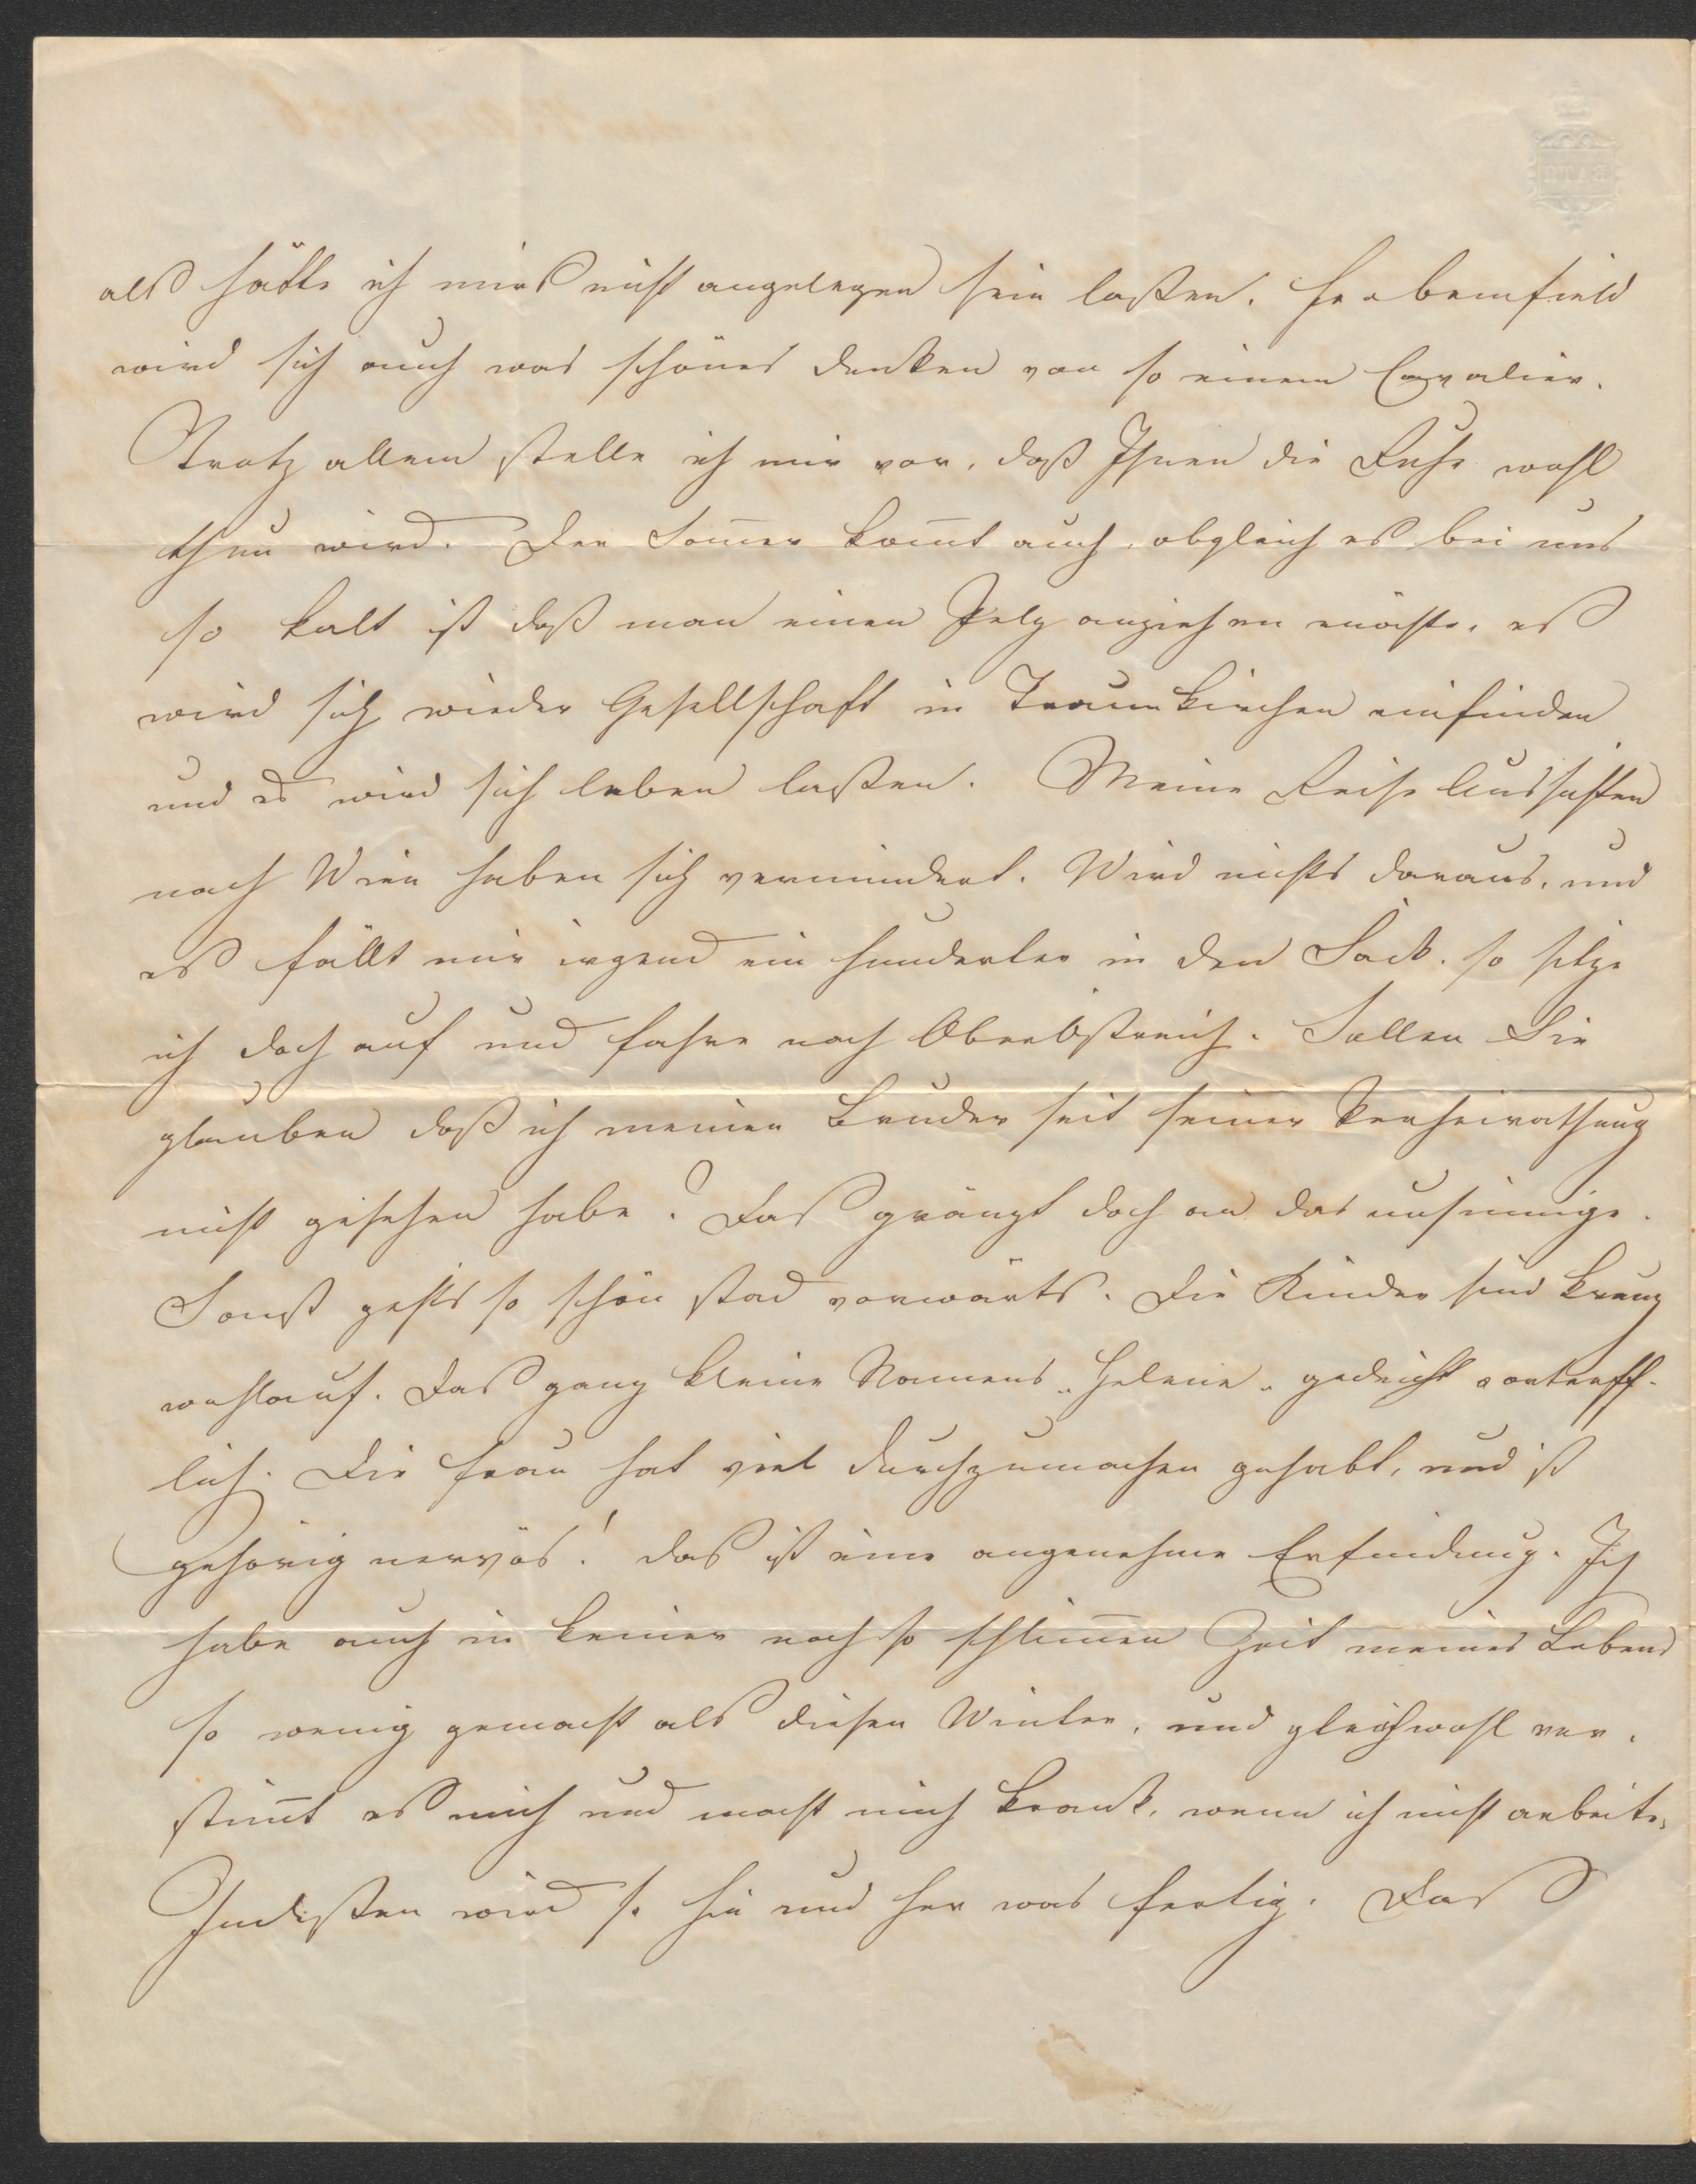 als hätte ich mirs nicht angelegen sein laßen. Frabenfield
wird sich auch was schönes denken von so einem Cavalier.
Trotz allem stelle ich mir vor, daß Ihnen die Ruhe wohl
thun wird. Der Som̅er kom̅t auch, obgleich es bei uns
so kalt ist daß man einen Pelz anziehen möchte, es
wird sich wieder Gesellschaft in Traunkirchen einfinden
und es wird sich leben laßen. Meine Reise Aussichten
nach Wien haben sich vermindert. Wird nichts daraus, und
es fällt mir irgend ein hunderter in den Sack. so sitze
ich doch auf und fahre nach Oberöstreich. Sollen Sie
glauben daß ich meinen Bruder seit seiner Verheirathung
nicht gesehen habe? Das gränzt doch an das unsinnige.
Sonst gehts so schön stad vorwärts. Die Kinder sind kreuz
wohlauf. Das ganz kleine Namens „Helene„ gedeiht vortreff-
lich. Die Frau hat viel durchzumachen gehabt, und ist
gehörig nervös! das ist eine angenehme Erfindung. Ich
habe auch in keiner noch so schlim̅en Zeit meines Lebens
so wenig gemacht als diesen Winter, und gleichwohl ver-
stim̅t es mich und macht mich krank, wenn ich nicht arbeite,
Indeßen wird so hin und her was fertig. Das